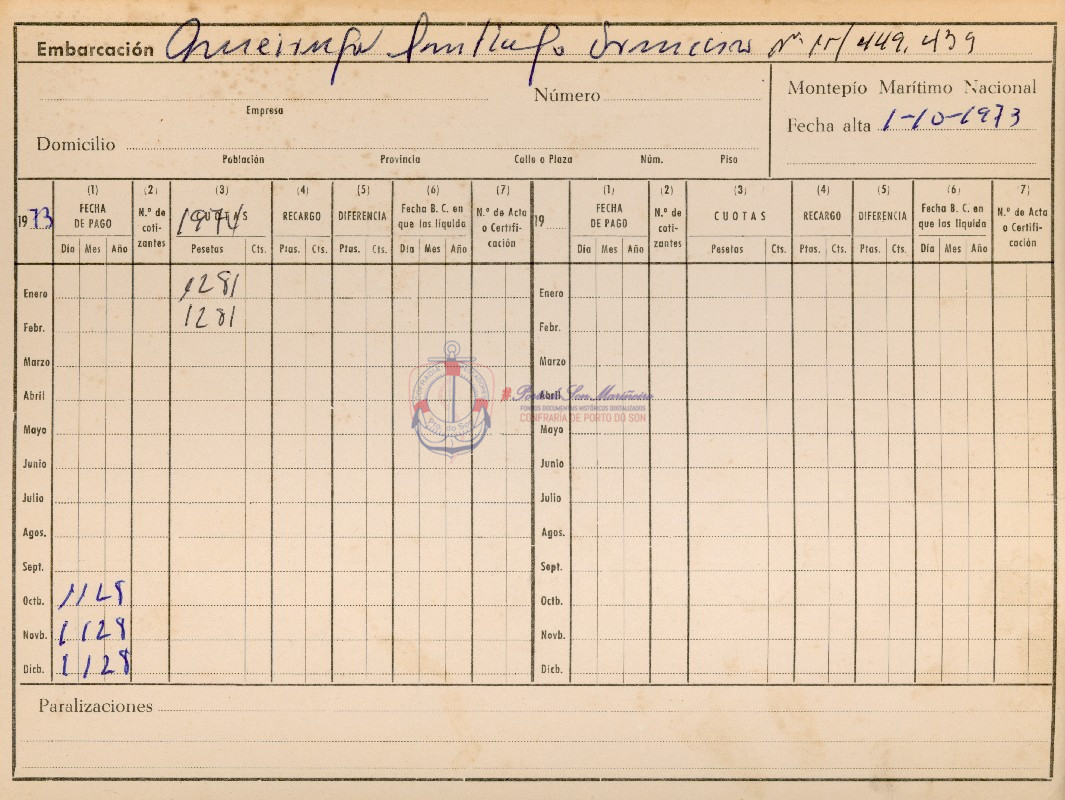 Embarcación Queiruga Santiago nº 15/449.439
Número
Montepío Marítimo Nacional
Empresa
Fecha alta 1-10-1973
Domicilio
Población Provincia Calle o Plaza Núm. Piso
1973 (1) FECHA DE PAGO (2) N.º de coti- zantes (3) CUOTAS 1974 (4) RECARGO (5) DIFERENCIA (6) Fecha B. C. en que las liquida (7) N.º de Acta o Certifi- cación 19 (1) FECHA DE PAGO (2) N.º de coti- zantes (3) CUOTAS (4) RECARGO (5) DIFERENCIA (6) Fecha B. C. en que las liquida 7) N.º de Acta o Certifi- cación
Día Mes Año Pesetas Cts. Ptas. Cts. Ptas. Cts. Día Mes Año Día Mes Año Pesetas Cts. Ptas. Cts. Ptas. Cts. Día Mes Año
Enero 1281 Enero
Febr. 1281 Febr.
Marzo Marzo
Abril Abril
COFRADIA PESCADORES
Pto. do Son
#Porto do Son Mariñeiro
FONDOS DOCUMENTAIS HISTÓRICOS DIXITALIZADOS
CONFRARÍA DE PORTO DO SON
Mayo Mayo
Junio Junio
Julio Julio
Agos. Agos.
Sept. Sept.
Octb. 1128 Octb.
Novb. 1128 Novb.
Dicb. 1128 Dicb.
Paralizaciones